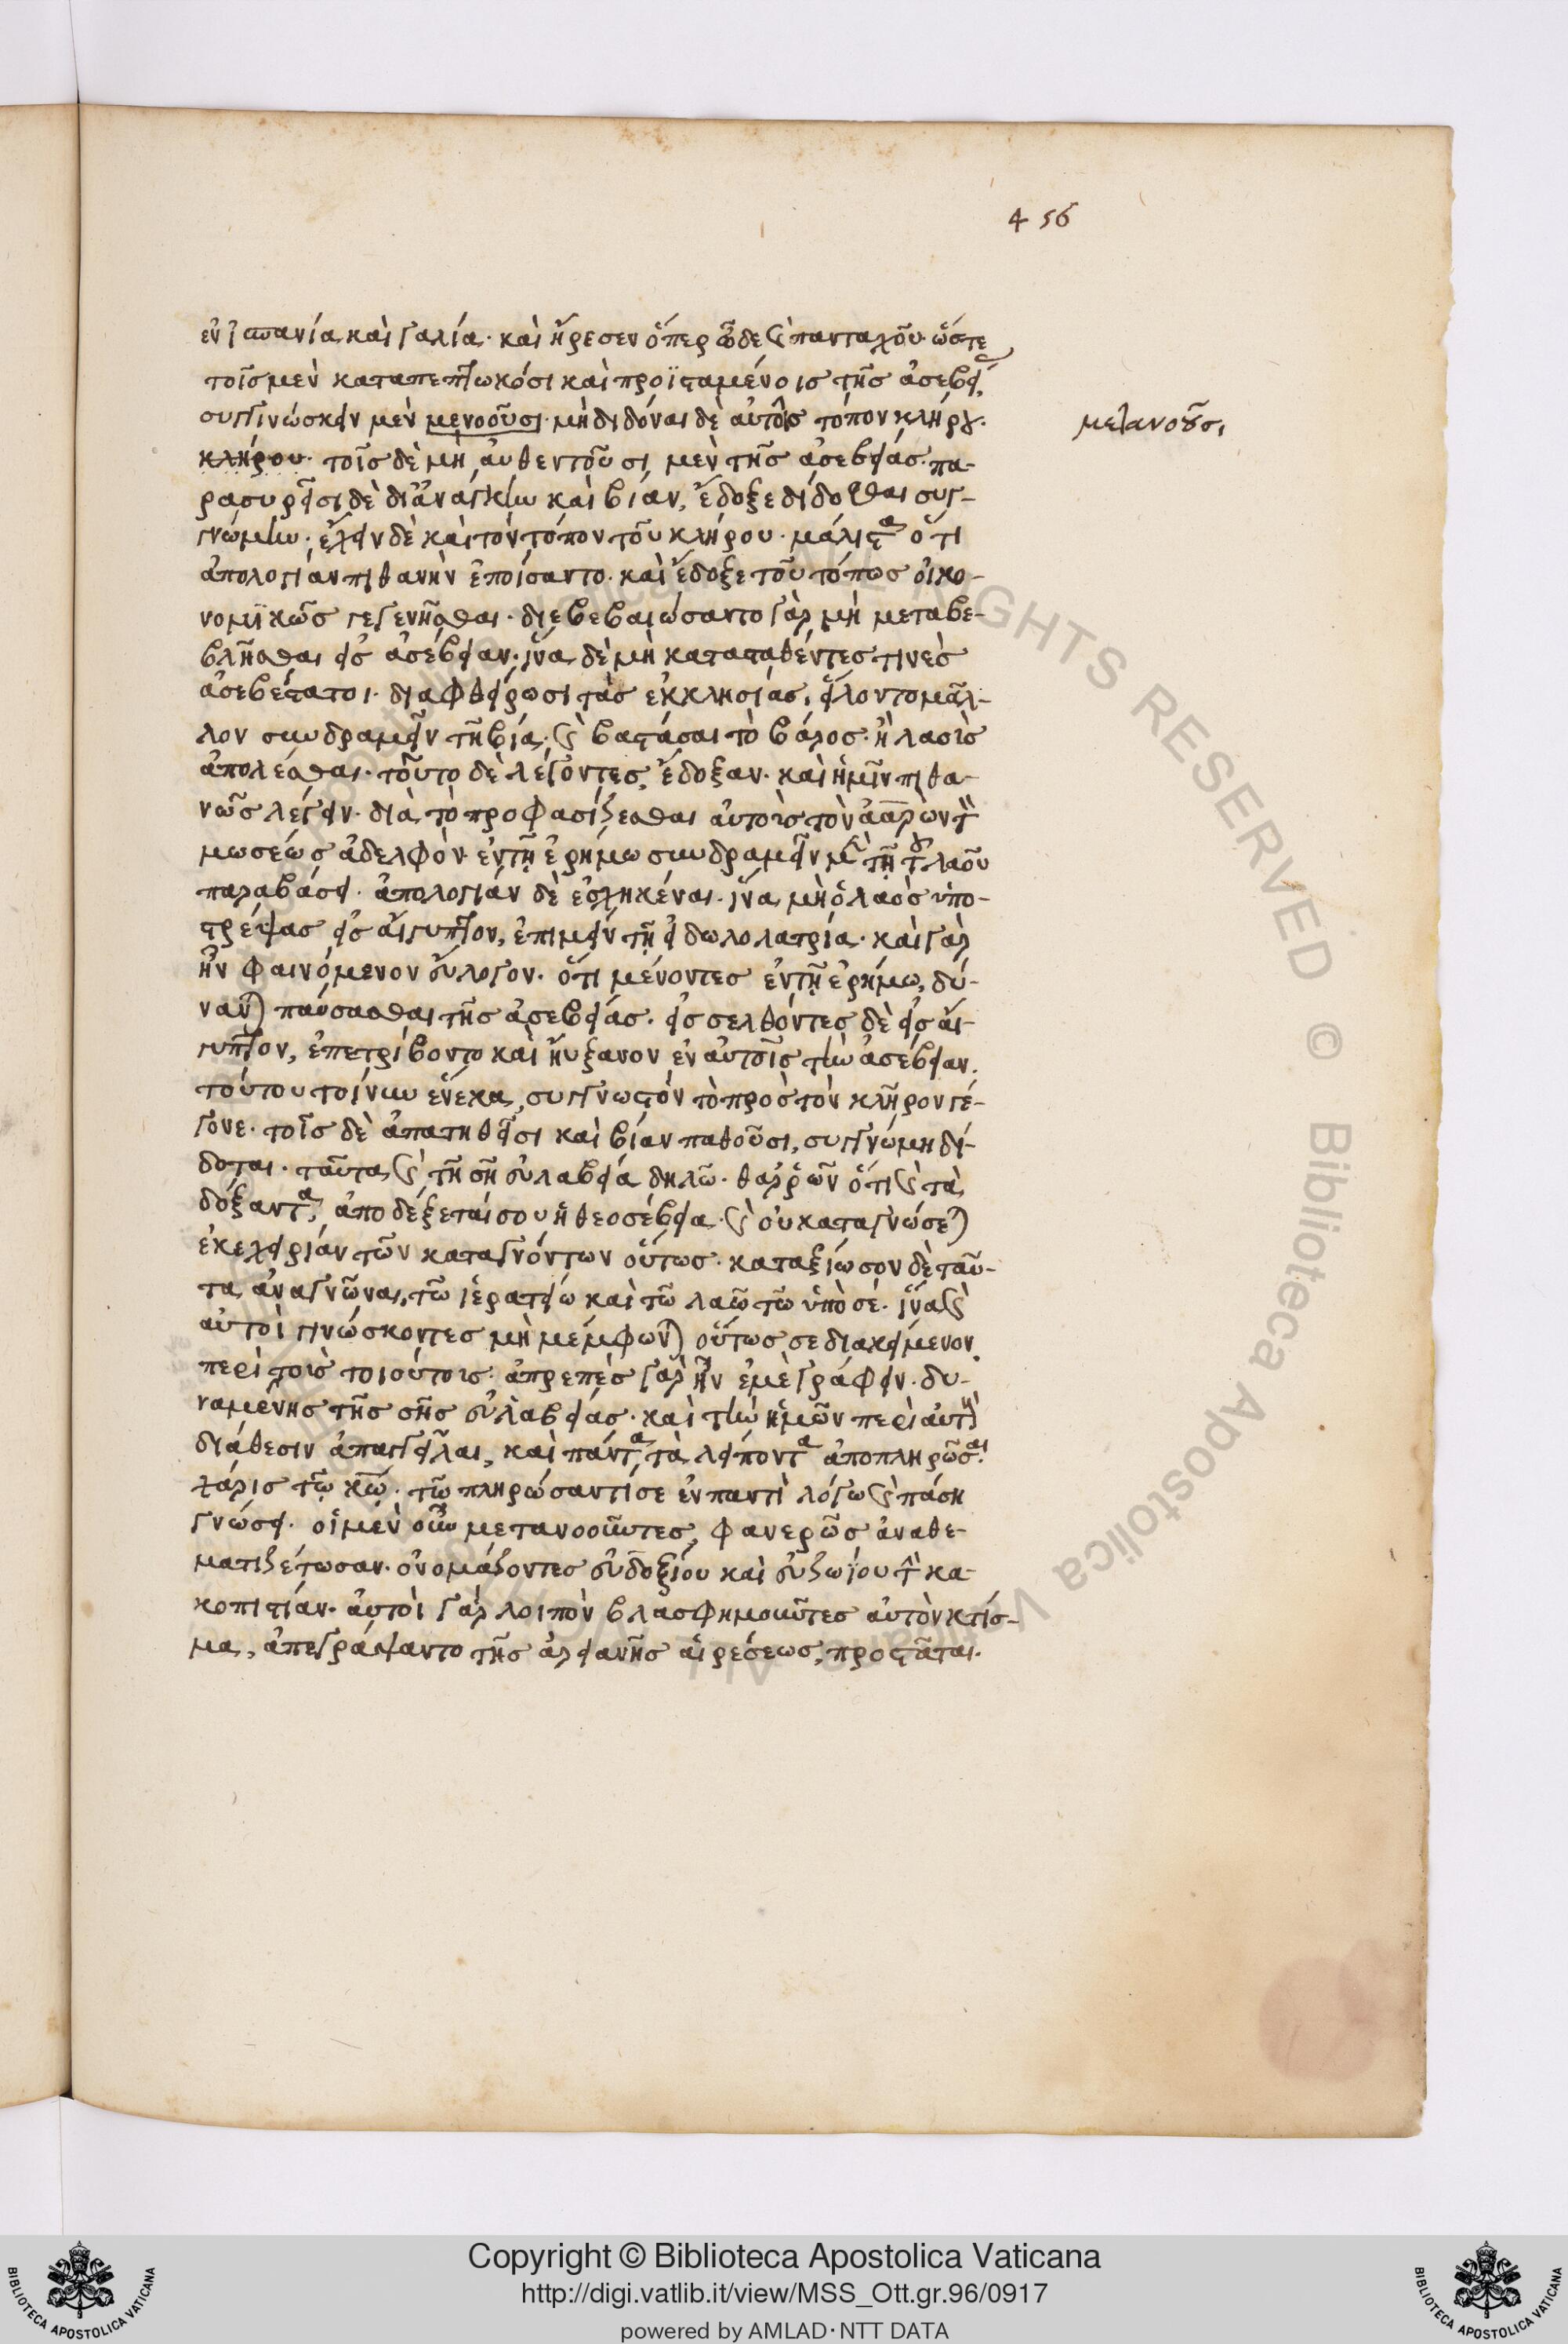 456
ἐν ἱσπανία καὶ γαλία· καὶ ἤρεσεν ὅπερ ὧδε καὶ πανταχοῦ ὥστε
τοῖς μὲν καταπεπτωκόσι καὶ προϊσταμένοις τῆς ἀσεβείας
συγγινώσκειν μὲν μενοοῦσι· μὴ διδόναι δὲ αὐτοῖς τόπον κλήρου·
μετανοοῦσι
κλήρου· τοῖς δὲ μὴ αὐθεντοῦσι μὲν τῆς ἀσεβείας· πα-
ρασυρεῖσι δὲ δι ἀνάγκην καὶ βίαν, ἔδοξε δίδοσθαι συγ-
γνώμην· ἔχειν δὲ καὶ τὸν τόπον τοῦ κλήρου· μάλιστα ὅτι
ἀπολογίαν πιθανὴν ἐποίσαντο· καὶ ἔδοξε τοῦτό πως οἰκο-
νομϊκῶς γεγενῆσθαι· διεβεβαιώσαντο γὰρ μὴ μεταβε-
βλῆσθαι εἰς ἀσέβειαν· ἵνα δὲ μὴ κατασταθέντες τινὲς
ἀσεβέστατοι· διαφθείρωσι τὰς ἐκκλησίας, εἵλοντο μᾶλ-
λον συνδραμεῖν τῆ βία· καὶ βαστάσαι τὸ βάρος· ἢ λαοὺς
ἀπολέσθαι· τοῦτο δὲ λέγοντες, ἔδοξαν· καὶ ἡμῖν πιθα-
νῶς λέγειν· διὰ τὸ προφασίζεσθαι αὐτοὺς τὸν ἀαρὼν τὸν
μωσέως ἀδελφὸν ἐν τῆ ἐρήμω συνδραμεῖν μὲν τῆ τοῦ λαοῦ
παραβάσει· ἀπολογίαν δὲ ἐσχηκέναι· ἵνα μὴ ὁ λαὸς ὑπο-
στρέψας εἰς αἴγυπτον, ἐπιμείνη τῆ εἰδωλολατρία· καὶ γὰρ
ἦν φαινόμενον εὔλογον· ὅτι μένοντες ἐν τῆ ἐρήμω, δύ-
νανται παύσασθαι τῆς ἀσεβείας· εἰσελθόντες δὲ εἰς αἴ-
γυπτον, ἐπετρίβοντο καὶ ηὔξανον ἐν αὐτοῖς τὴν ἀσέβειαν.
τούτου τοίνυν ἕνεκα, συγγνωστὸν τὸ πρὸς τὸν κλῆρον γέ-
γονε· τοῖς δὲ ἀπατηθεῖσι καὶ βίαν παθοῦσι, συγγνώμη δί-
δοται· ταῦτα καὶ τῆ σῆ εὐλαβεία δηλῶ· θαρρῶν ὅτι καὶ τὰ
δόξαντα, ἀποδέξεταί σου ἡ θεοσέβεια· καὶ οὐ καταγνώσεται
ἐκεχειρίαν τῶν καταγνόντων οὕτως· καταξίωσον δὲ ταῦ-
τα ἀναγνῶναι, τῶ ἱερατείω καὶ τῶ λαῶ τῶ ὑπὸ σέ· ἵνα καὶ
αὐτοὶ γινώσκοντες μὴ μέμφωνται οὕτως σε διακείμενον
περὶ τοὺς τοιούτους· ἀπρεπὲς γὰρ ἦν ἐμὲ γράφειν· δυ-
ναμένης τῆς σῆς εὐλαβείας· καὶ τὴν ἡμῶν περὶ αὐτὴν
διάθεσιν ἀπαγγεῖλαι, καὶ πάντα τὰ λείποντα ἀποπληρῶσαι.
χάρις τῶ κῶ· τῶ πληρώσαντί σε ἐν παντὶ λόγω καὶ πάση
γνώσει· οἱ μὲν οὖν μετανοοῦντες, φανερῶς ἀναθε-
ματιζέτωσαν· ὀνομάζοντες εὐδοξίου καὶ εὐζωΐου τὴν κα-
κοπιστίαν· αὐτοὶ γὰρ λοιπὸν βλασφημοῦντες αὐτὸν κτίσ-
μα, ἀπεγράψαντο τῆς ἀρειανῆς αἱρέσεως, προστᾶται.
ALL RIGHTS RESERVED © Biblioteca Apostolica Vaticana
Copyright © Biblioteca Apostolica Vaticana
http://digi.vatlib.it/view/MSS_Ott.gr.96/0917
powered by AMLAD·NTT DATA
BIBLIOTECA APOSTOLICA VATICANA
BIBLIOTECA APOSTOLICA VATICANA